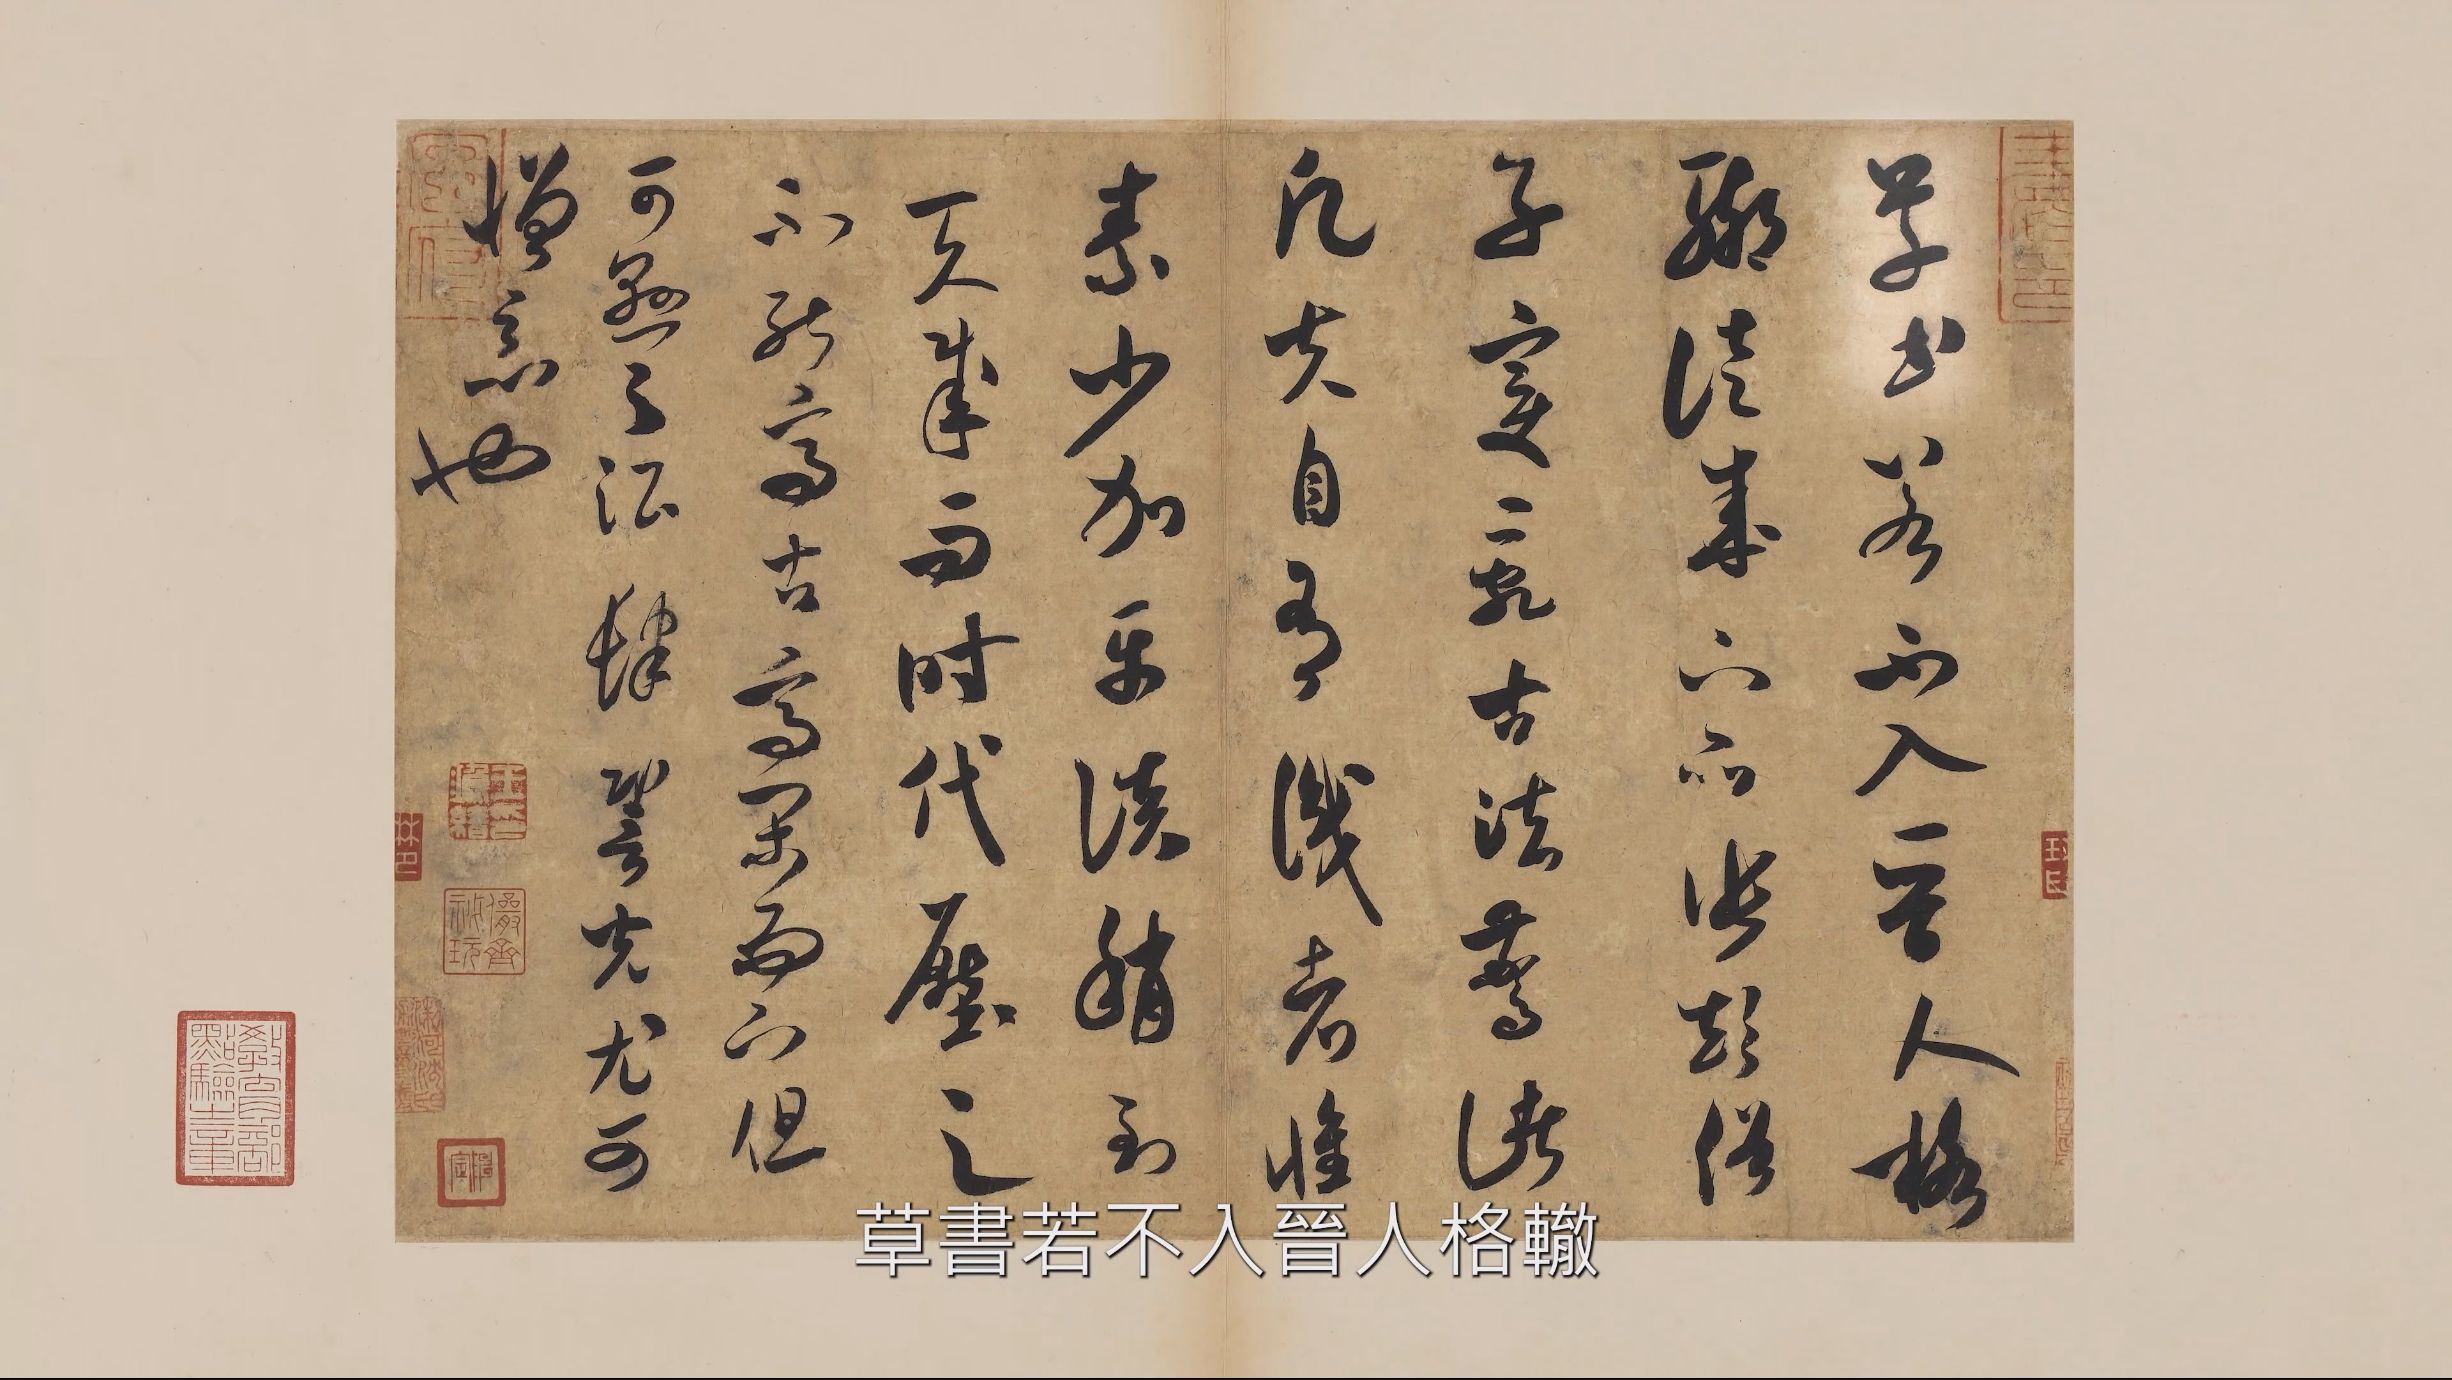 草書若不入晉人格
轍徒成下品張顛俗
子變亂古法驚諸
凡夫自有識者懷
素少加平淡稍到
天成而時代壓之
不能高古高閑而下但
可懸之酒肆䛒光尤可
憎惡也
草書若不入晉人格轍
教育部點驗之章